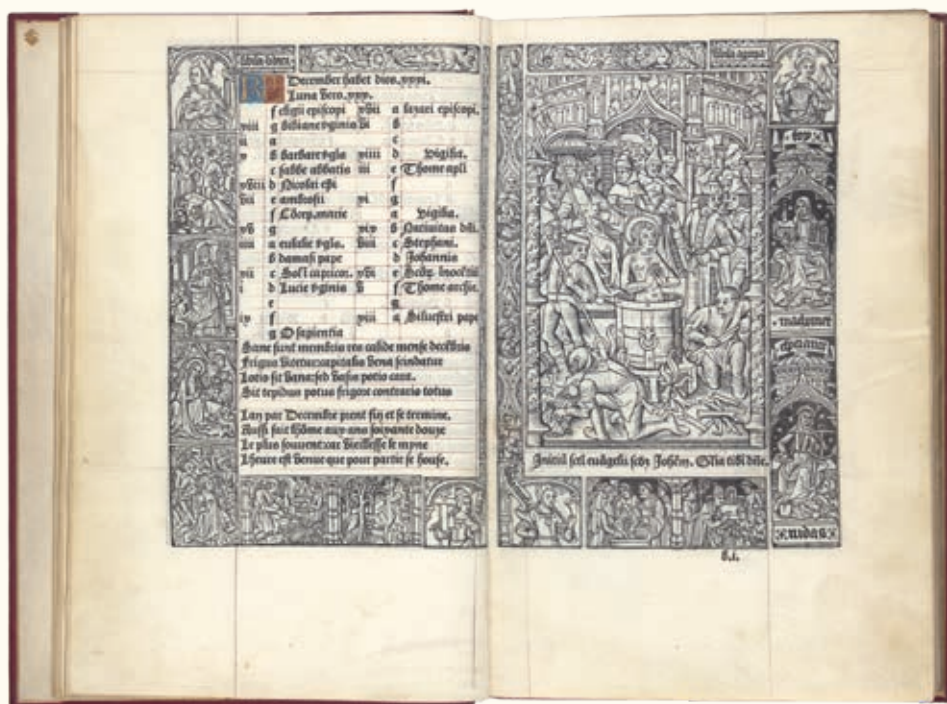 December habet dies .xxxi.
Luna vero .xxx.
f eligii episcopi xviii a lazari episcopi.
viii g bibiane vginis vi b
ii a c
x b barbare vgis xiiii d Vigilia.
c sabbe abbatis iii e Thome apli
xviii d Nicolai epi f
vii e ambrosii xi g
f Cōcep. marie a Vigilia.
xv g xix b Nativitas dñi.
iiii a eulalie vgis. viii c Stephani.
b damasi pape d Johannis
xii c Sol ī capricor. xvi e
i d Lucie vginis v f Thome archie.
e g
ix f xiii a Silvestri pape
g O sapientia
Sane sunt membris res calide mense decēbris
Frigus vitetur: capitalis vena scindatur
Lotio sit vana: sed vasis potio cara.
Sit tepidus potus frigore contrario totus
Lan par Decembre prent fin et se termine.
Aussi fait lhōme aux ans soixante douze
Le plus souvent: car vieillesse le mine
Lheure est venue que pour partir se house.
Iniciū scti euāgelii scdz Johēm. Glia tibi dñe.
b.i.